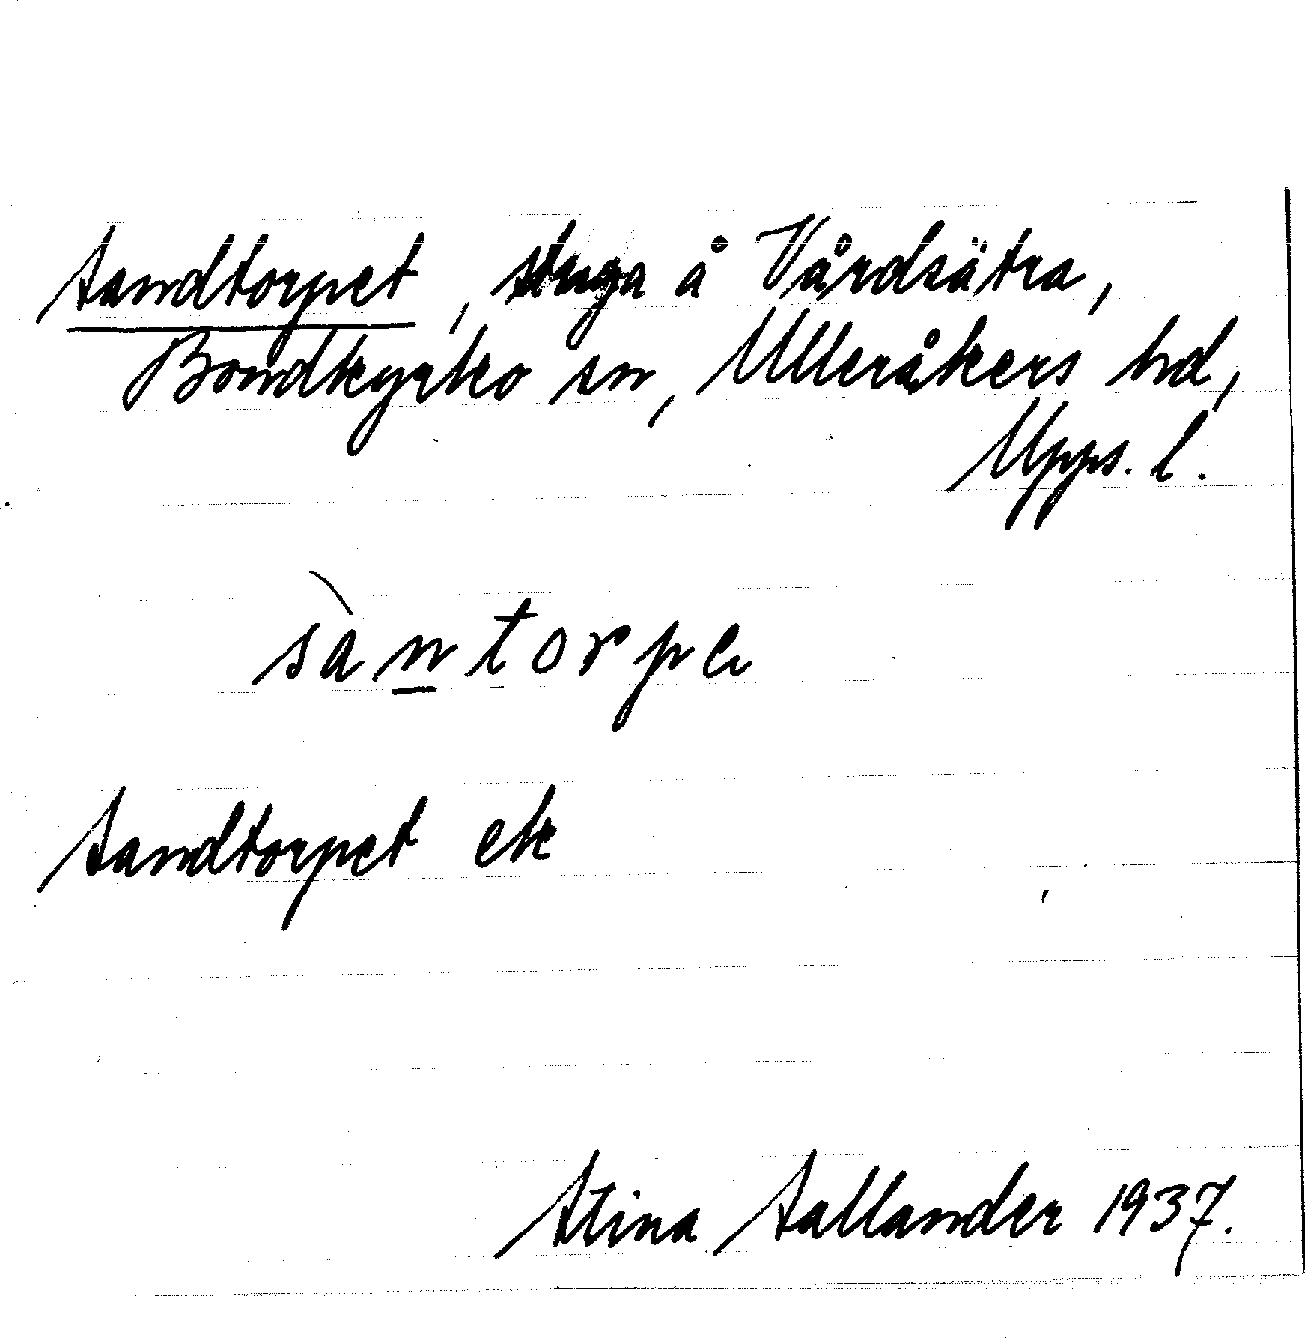 Sandtorpet, stuga å Vårdsätra,
Bondkyrko sn, Ulleråkers hd,
Upps. l.
sàntorpe
Sandtorpet ek
Stina Sallander 1937.